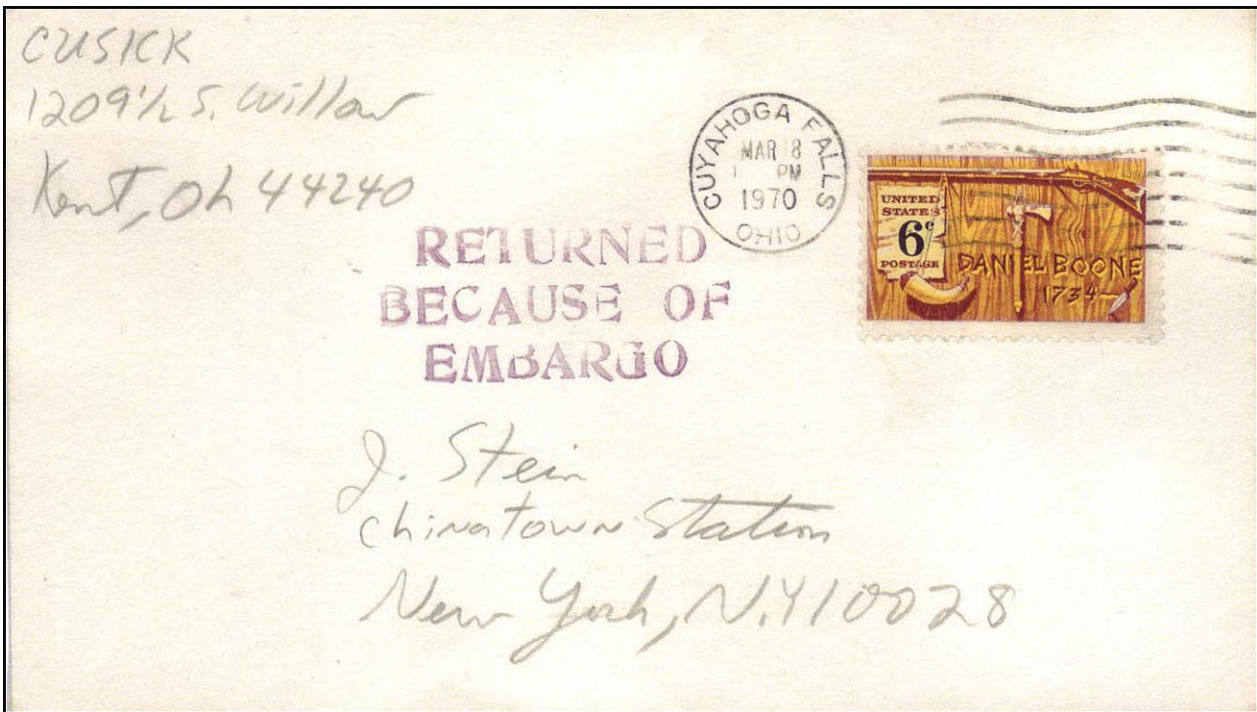 CUSICK
1209 1/2 S. Willow
Kent, Oh 44240
CUYAHOGA FALLS
MAR 18
PM
1970
OHIO
UNITED
STATES
6c
POSTAGE
DANIEL BOONE
1734
RETURNED
BECAUSE OF
EMBARGO
J. Stein
Chinatown Station
New York, N.Y 10028